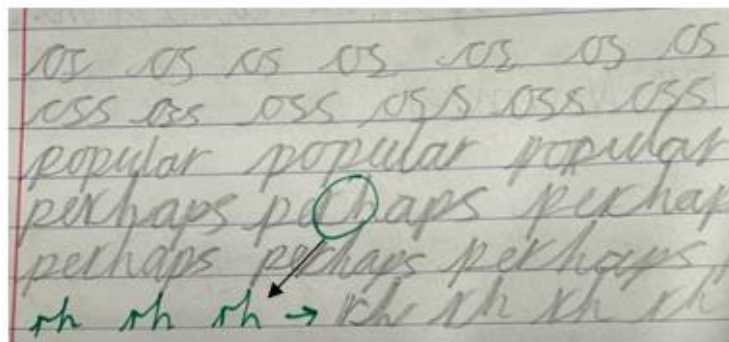 os os os os os os os
oss oss oss oss oss oss
popular popular popular
perhaps perhaps perhap
perhaps perhaps perhaps
rh rh rh → rh rh rh rh